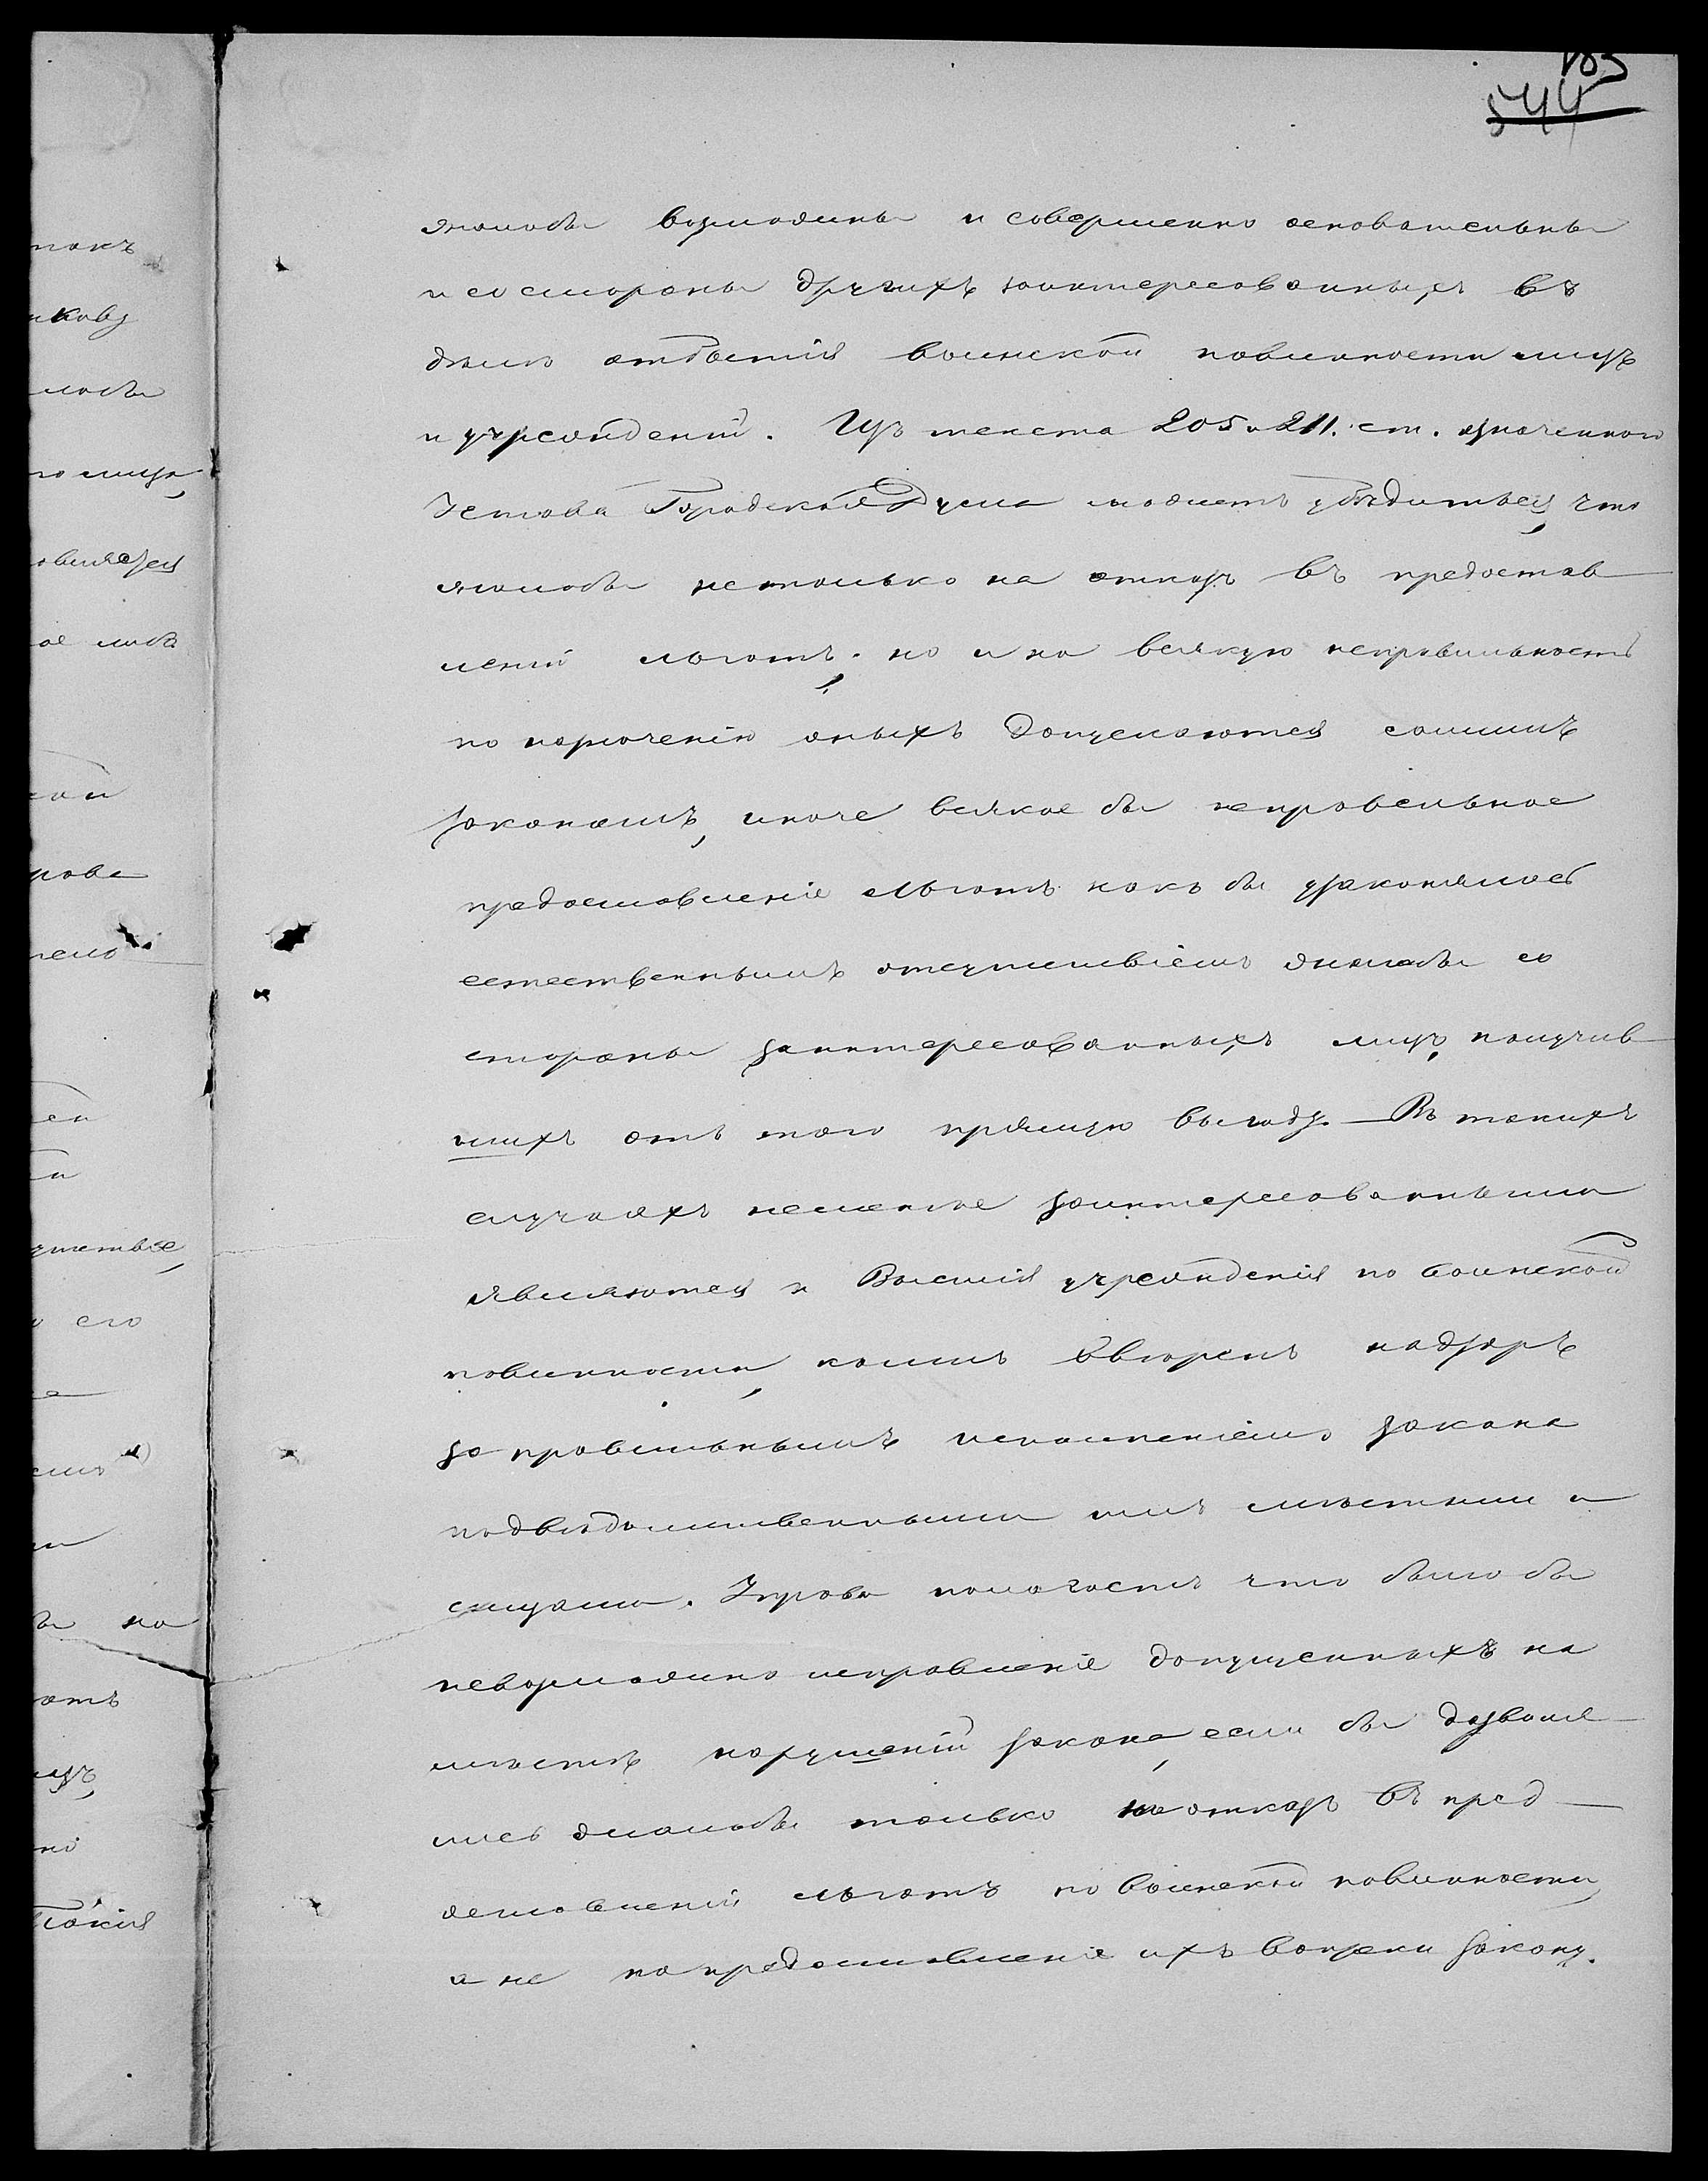 544
жалобы возможны и совершенно основательны
и со стороны другихъ заинтересованныхъ въ
дѣлѣ отбытія воинской повинности лицъ
и учрежденій. Изъ текста 205 и 211. ст. означеннаго
Устава Городская Дума можетъ убѣдиться, что
жалобы не только на отказъ въ предостав
леніи льготъ, но и на всякую неправильность
по нарѣченію оныхъ допускаются самимъ
закономъ, иначе всякое бы неправильное
предоставленіе льготъ какъ бы узаконялось
естественнымъ отсутствіемъ жалобы со
стороны заинтересованныхъ лицъ, получив
шихъ отъ того прямую выгоду. — Въ такихъ
случаяхъ не менѣе заинтересованными
являются и Высшія учрежденія по воинской
повинности, коимъ ввѣренъ надзоръ
за правильнымъ исполненіемъ закона
подвѣдомственными имъ мѣстными
Управа полагаетъ что было бы
невозможно исправленіе допущенныхъ на
мѣстѣ нарушеній закона, если бы дозволя
лись жалобы только на отказъ въ пред
оставленіи льготъ по воинской повинности,
а не на предоставленіе ихъ вопреки закону.